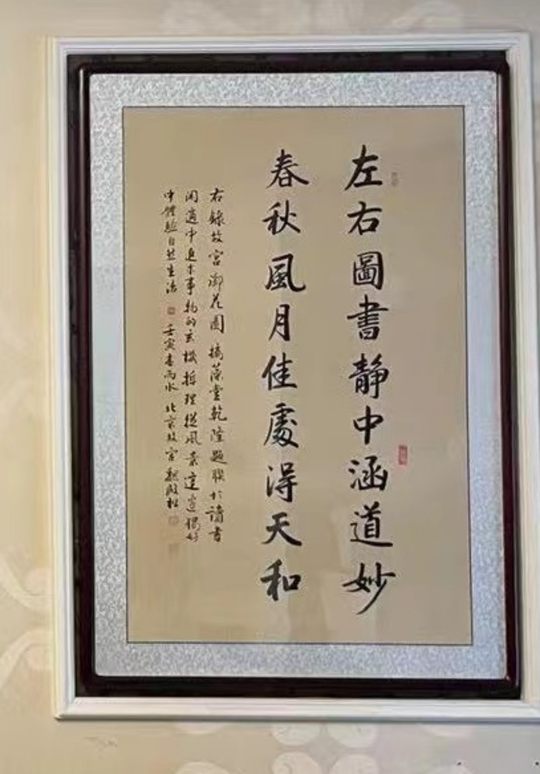 左右圖書靜中涵道妙
春秋風月佳處得天和
右錄故宮御花園摛藻堂乾隆題聯於讀書
閑適中追求事物的玄機哲理從風景
中體驗自然生活 壬寅春雨水 北京故宮